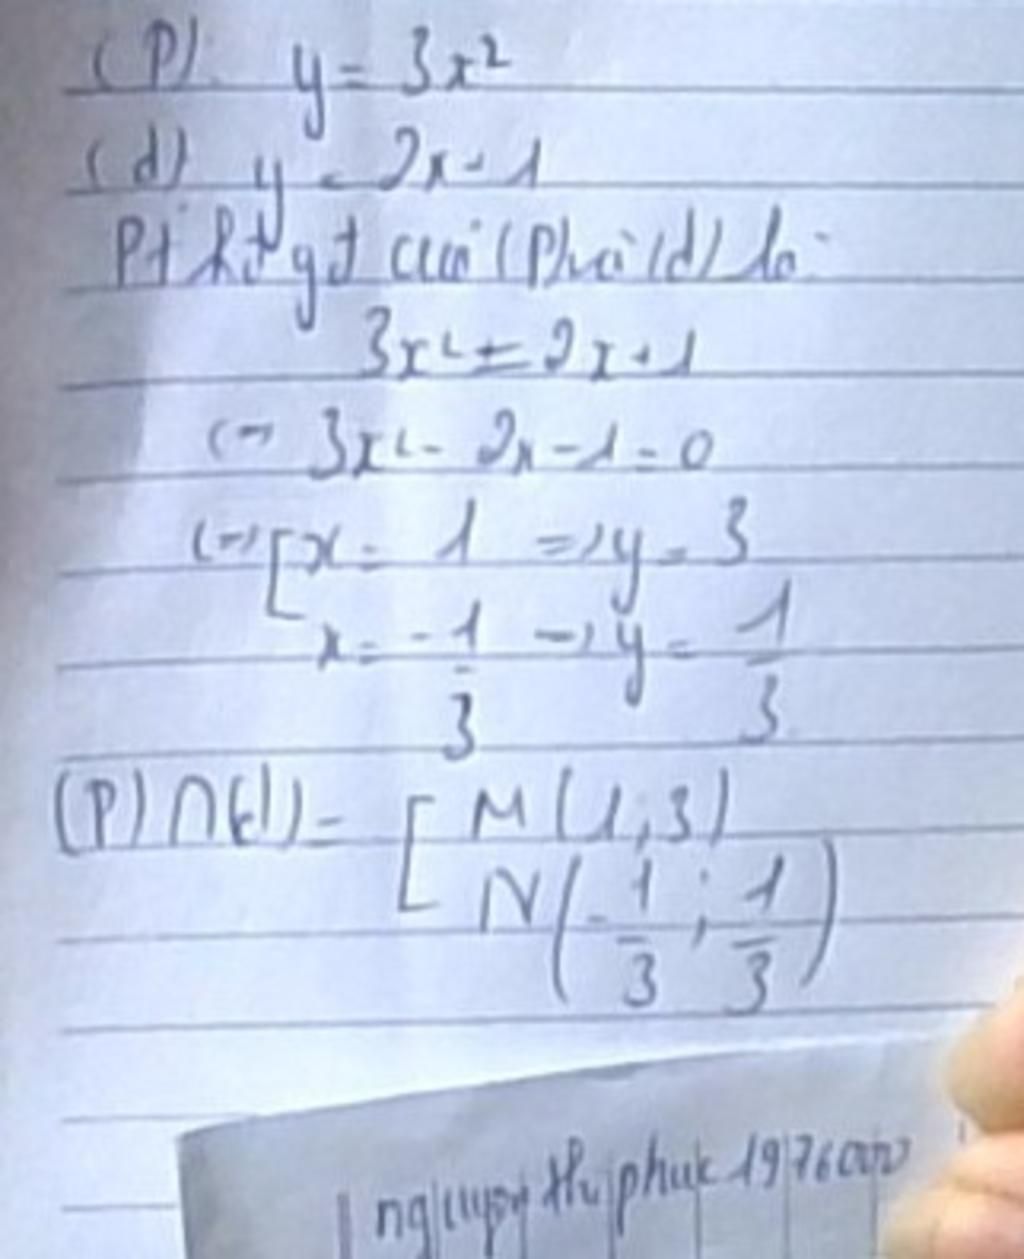 (P). y = 3x²
(d) y = 2x + 1
Pt hđgđ của (P) và (d) là:
3x² = 2x + 1
<=> 3x² - 2x - 1 = 0
<=> [ x = 1 => y = 3
x = -1/3 => y = 1/3
(P) ∩ (d) = [ M (1; 3)
N (-1/3 ; 1/3)
nguyen thi phuc 1976000